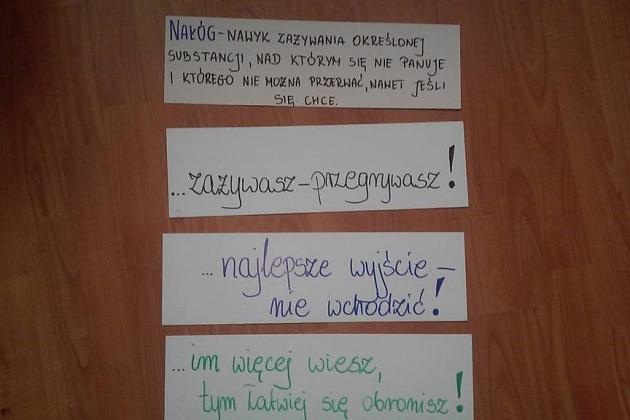 NAŁÓG - NAWYK ZAŻYWANIA OKREŚLONEJ
SUBSTANCJI, NAD KTÓRYM SIĘ NIE PANUJE
I KTÓREGO NIE MOŻNA PRZERWAĆ, NAWET JEŚLI
SIĘ CHCE.
...zażywasz - przegrywasz!
...najlepsze wyjście -
nie wchodzić!
...im więcej wiesz,
tym łatwiej się obronisz!